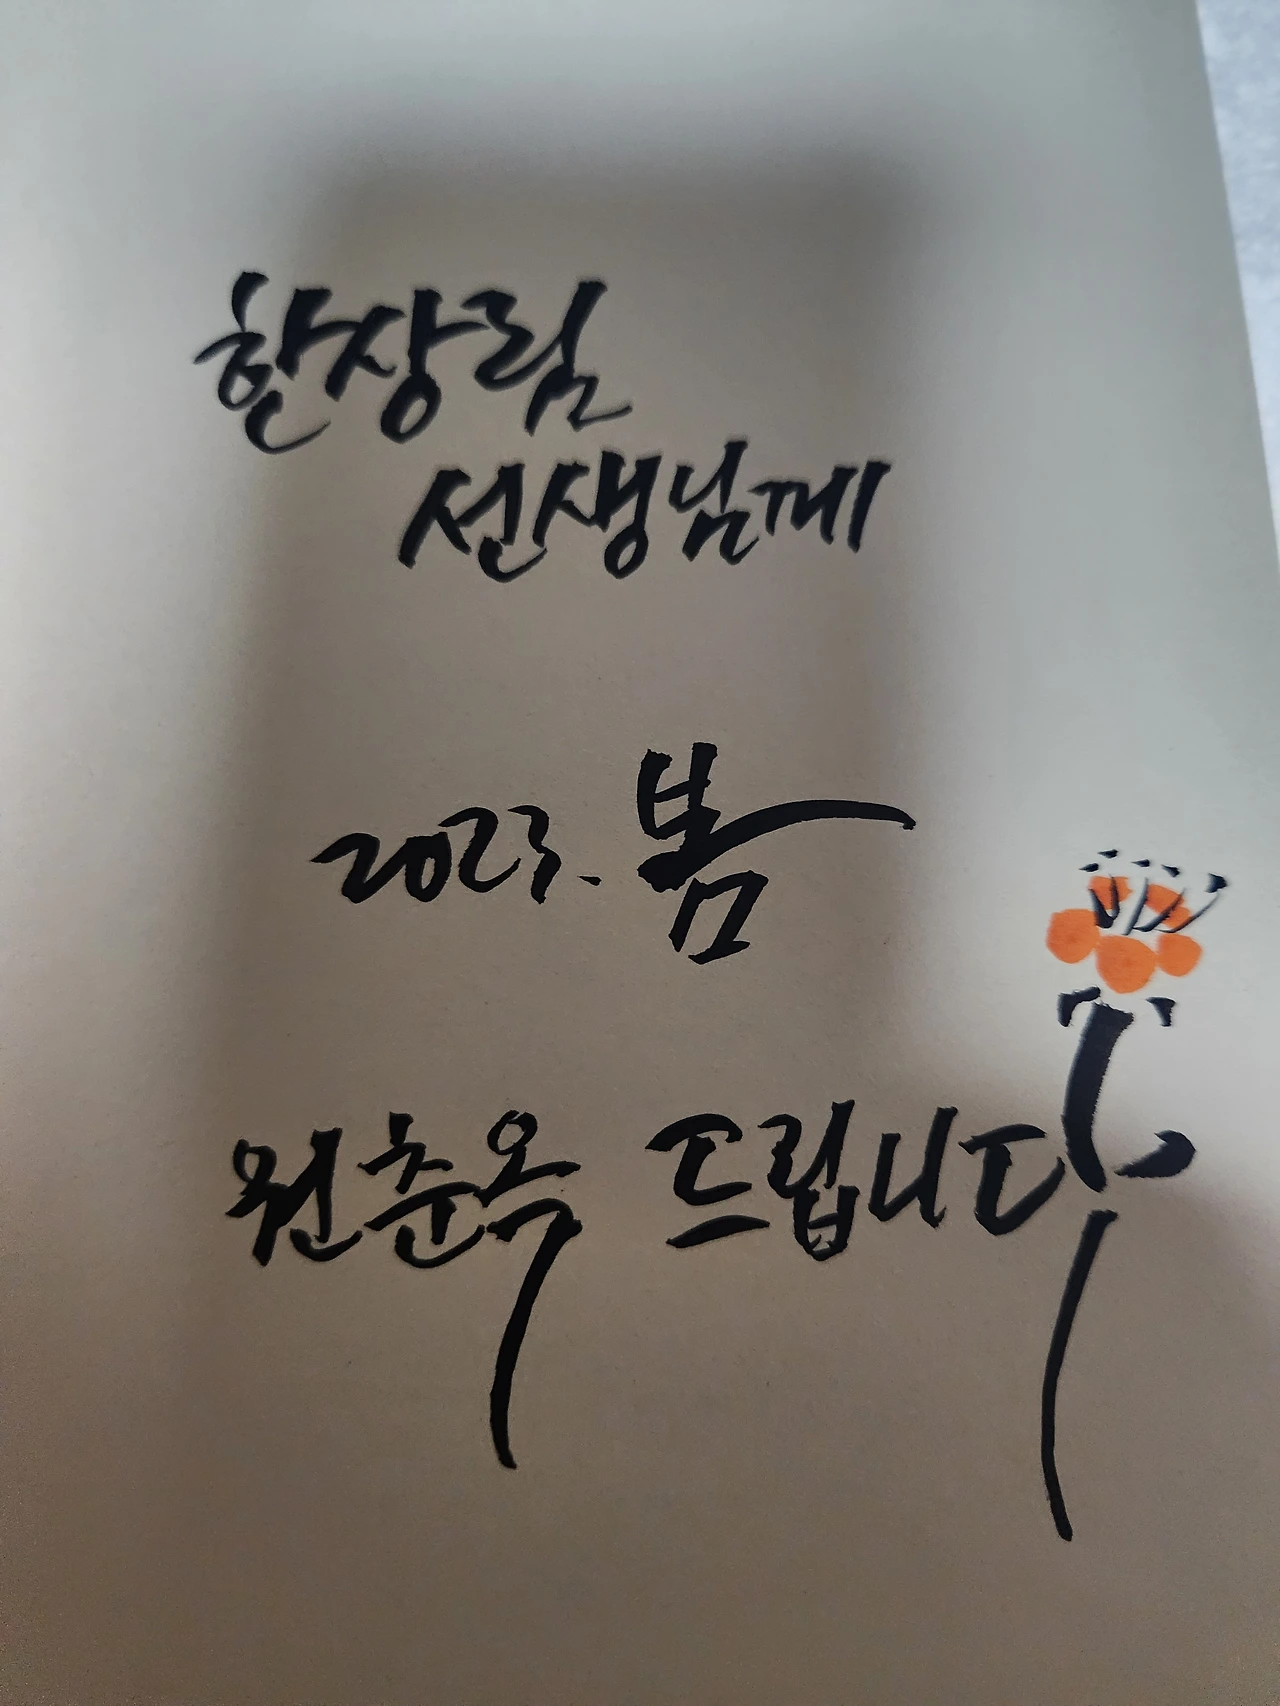 한상림
선생님께
2023. 봄
원춘옥 드립니다